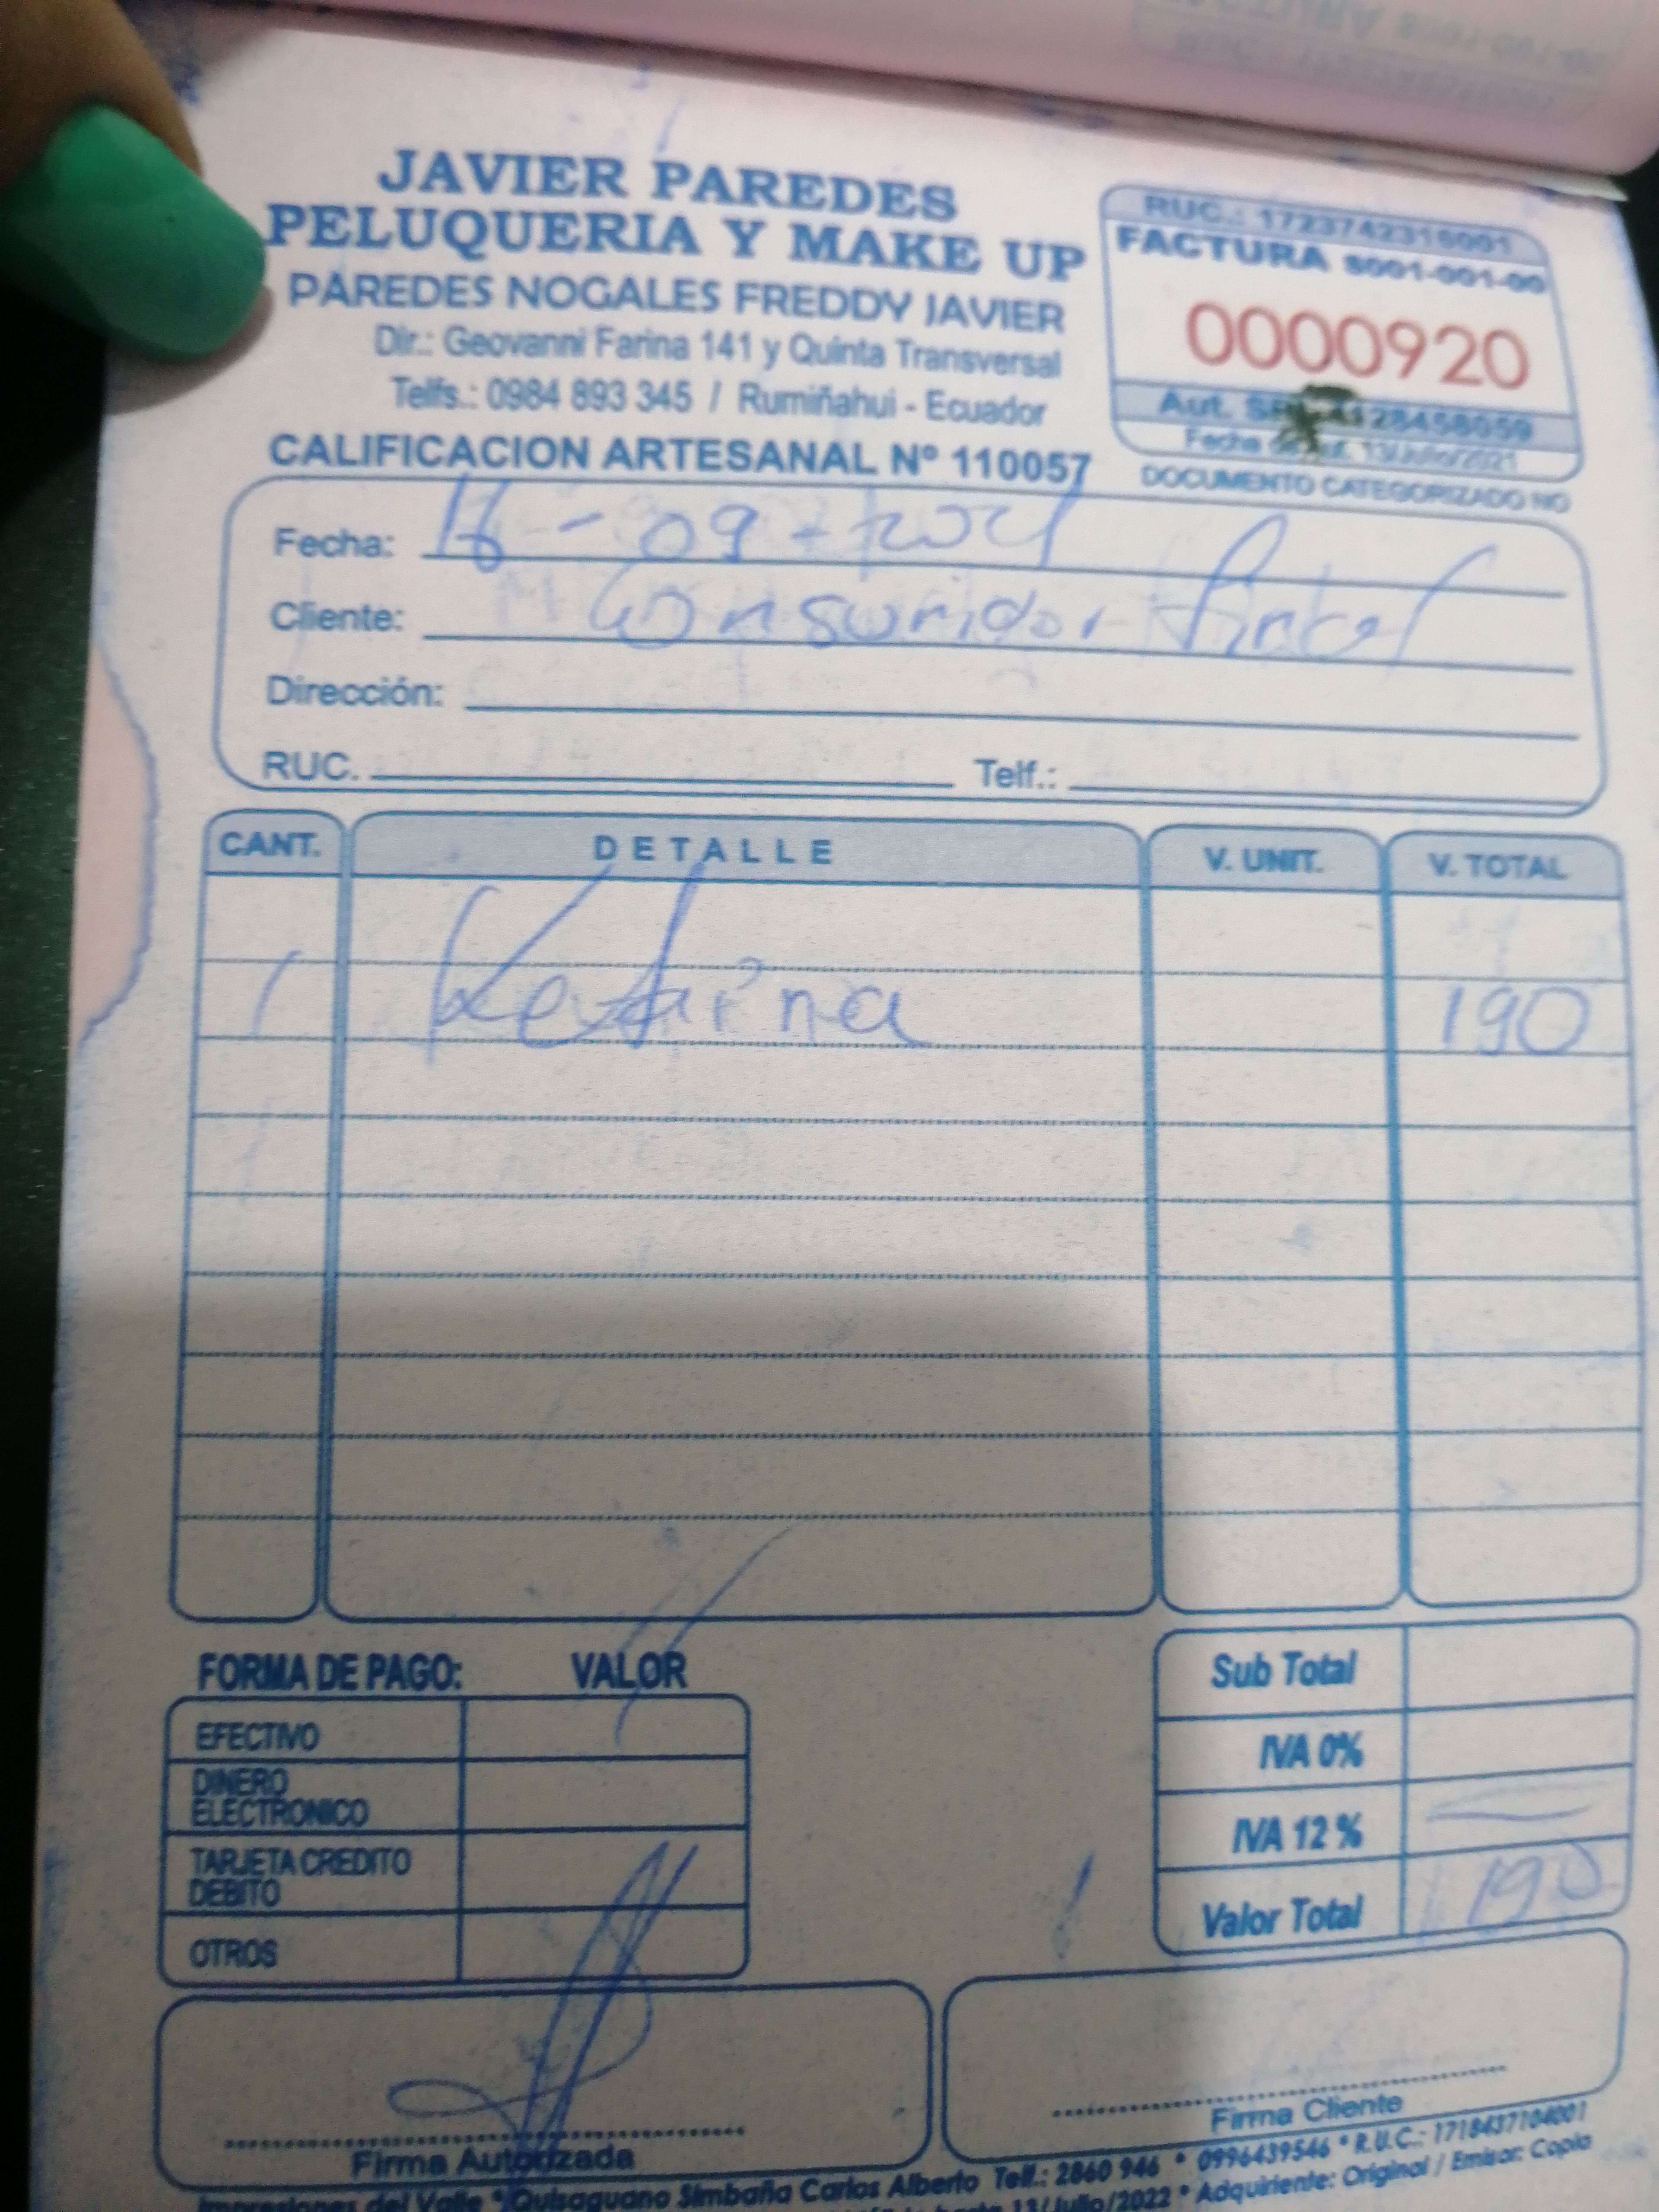 JAVIER PAREDES
PELUQUERIA Y MAKE UP
PAREDES NOGALES FREDDY JAVIER
Dir.: Geovanni Farina 141 y Quinta Transversal
Telfs.: 0984 893 345 / Rumiñahui - Ecuador
CALIFICACION ARTESANAL Nº 110057
RUC.: 1723742315001
FACTURA S001-001-00
0000920
Aut. 28458059
Fecha de 13/Julio/2021
DOCUMENTO CATEGORIZADO NO
Fecha: 16-09-2021
Cliente: Consumidor final
Dirección:
RUC. Telf.:
CANT. DETALLE V. UNIT. V. TOTAL
1 Ketina 190
FORMA DE PAGO: VALOR
EFECTIVO
DINERO
ELECTRONICO
TARJETA CREDITO
DEBITO
OTROS
Sub Total
IVA 0%
IVA 12 %
Valor Total 190
Firma Autorizada
Firma Cliente
Impresiones del Valle * Quisaguano Simbaña Carlos Alberto Telf.: 2860 946 * 0996439546 * R.U.C.: 1718437104001
hasta 13/Julio/2022 * Adquiriente: Original / Emisor: Copia